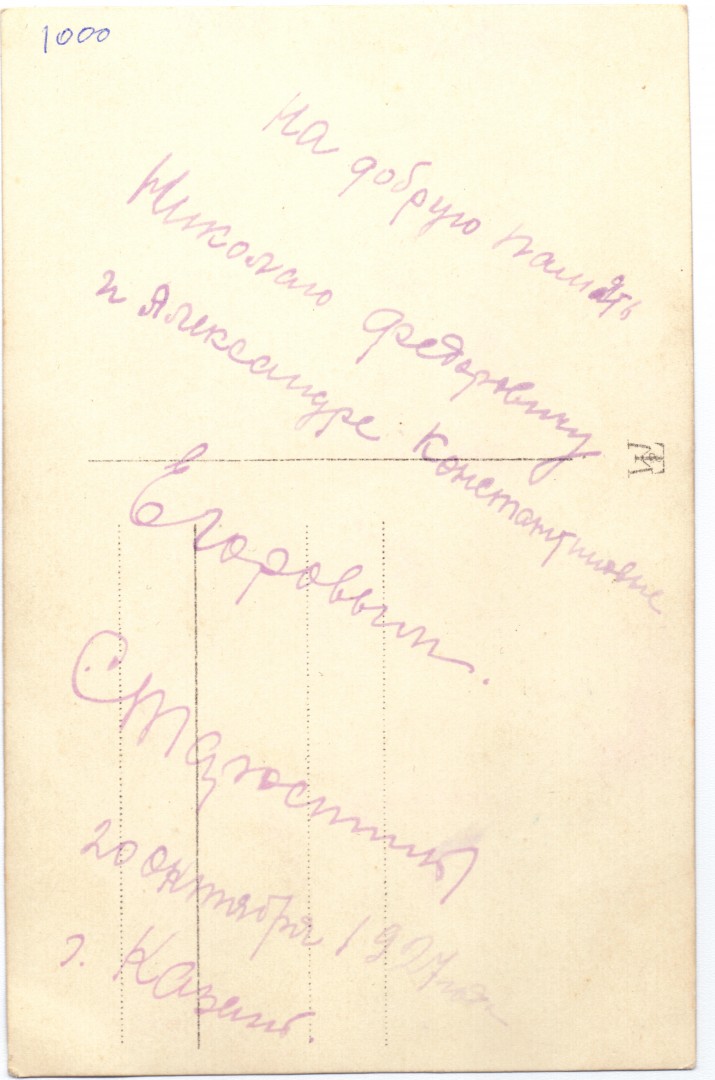 1000
на добрую память
Николаю Федоровичу
и Александре Константиновне
Егоровым.
20 октября 1927 года
г. Казань.